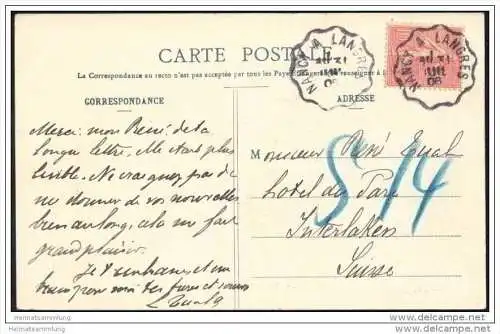 CARTE POSTALE
La Correspondance au recto n'est pas acceptée par tous les Pays
renseigner à la
CORRESPONDANCE
ADRESSE
NANCY A LANGRES
JUIL
06
NANCY A LANGRES
JUIL
06
Merci mon René de ta
longue lettre. Me étant plus
lisible. Ne crains pas de
me donner de vos nouvelles
bien au long, cela me fait
grand plaisir.
Je t'embrasse et
pour moi des
Monsieur René
Hotel du Parc
Interlaken
Suisse
S 14
heimatsammlung.de
Heimatsammlung.de